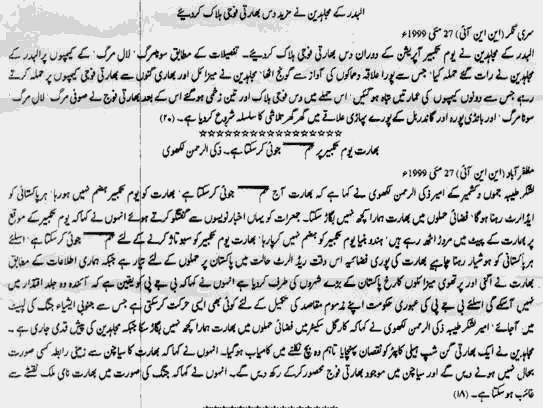 البدر کے مجاہدین نے مزید دس بھارتی فوجی ہلاک کر دیئے
سری نگر (این این آئی) 27 مئی 1999ء
البدر کے مجاہدین نے یوم تکبیر آپریشن کے دوران دس بھارتی فوجی ہلاک کر دیئے۔ تفصیلات کے مطابق سونمرگ' لال مرگ' کے کیمپوں پر البدر کے
مجاہدین نے رات گئے حملہ کیا' جس سے پورا علاقہ دھماکوں کی آواز سے گونج اٹھا' مجاہدین نے میزائل اور بھاری گنوں سے بھارتی فوجی کیمپوں پر حملہ کرتے
رہے جس سے دونوں کیمپوں کی عمارتیں تباہ ہو گئیں' اس حملے میں دس فوجی ہلاک اور تین زخمی ہو گئے اس کے بعد بھارتی فوج نے صوفی مرگ' لال مرگ'
سونا مرگ' اور بانڈی پورہ اور گاندربل کے پورے پہاڑی علاقے میں گھر گھر تلاشی کا سلسلہ شروع کر دیا ہے۔ (۲۰)
☆☆☆☆☆☆☆☆☆☆☆☆☆☆☆☆☆
بھارت یوم تکبیر پر مہم جوئی کر سکتا ہے۔ ذکی الرحمن لکھوی
مظفر آباد (این این آئی) 27 مئی 1999ء
لشکر طیبہ جموں و کشمیر کے امیر ذکی الرحمن لکھوی نے کہا ہے کہ بھارت آج مہم جوئی کر سکتا ہے' بھارت کو یوم تکبیر ہضم نہیں ہو رہا' ہر پاکستانی کو
ریڈ الرٹ رہنا ہو گا' فضائی حملوں میں بھارت ہمارا کچھ نہیں بگاڑ سکتا۔ جمعرات کو یہاں اخبار نویسوں سے گفتگو کرتے ہوئے انہوں نے کہا کہ یوم تکبیر کے موقع
پر بھارت کے پیٹ میں مروڑ اٹھ رہے ہیں' ہندو بنیا یوم تکبیر کو ہضم نہیں کر پا رہا' بھارت یوم تکبیر کو سبوتاژ کرنے کے لئے مہم جوئی کر سکتا ہے' اسلئے
ہر پاکستانی کو ہوشیار رہنا چاہیے بھارت کی پوری فضائیہ اس وقت ریڈ الرٹ حالت میں پاکستان پر حملوں کے لئے تیار ہے جبکہ ہماری اطلاعات کے مطابق
بھارت نے اگنی اور پرتھوی میزائلوں کا رخ پاکستان کے بڑے شہروں کی طرف کر دیا ہے انہوں نے کہا کہ بی جے پی کو یقین ہے کہ آئندہ وہ جلد اقتدار میں
نہیں آسکے گی اسلئے بی جے پی کی عبوری حکومت اپنے مذموم مقاصد کی تکمیل کے لئے کوئی بھی ایسی حرکت کر سکتی ہے جس سے جنوبی ایشیاء جنگ کی لپیٹ
میں آجائے' امیر لشکر طیبہ ذکی الرحمن لکھوی نے کہا کہ کارگل سیکٹر میں فضائی حملوں میں بھارت ہمارا کچھ نہیں بگاڑ سکا جبکہ مجاہدین کی پیش قدمی جاری ہے۔
مجاہدین نے ایک بھارتی گن شپ ہیلی کاپٹر کو نقصان پہنچایا تاہم وہ بچ نکلنے میں کامیاب ہو گیا۔ انہوں نے کہا کہ بھارت کا سیاچن سے زمینی رابطہ کسی صورت
بحال نہیں ہونے دیں گے اور سیاچن میں موجود بھارتی فوج محصور کر کے رکھ دیں گے۔ انہوں نے کہا کہ جنگ کی صورت میں بھارت نامی ملک نقشے سے
غائب ہو سکتا ہے۔ (۱۸)